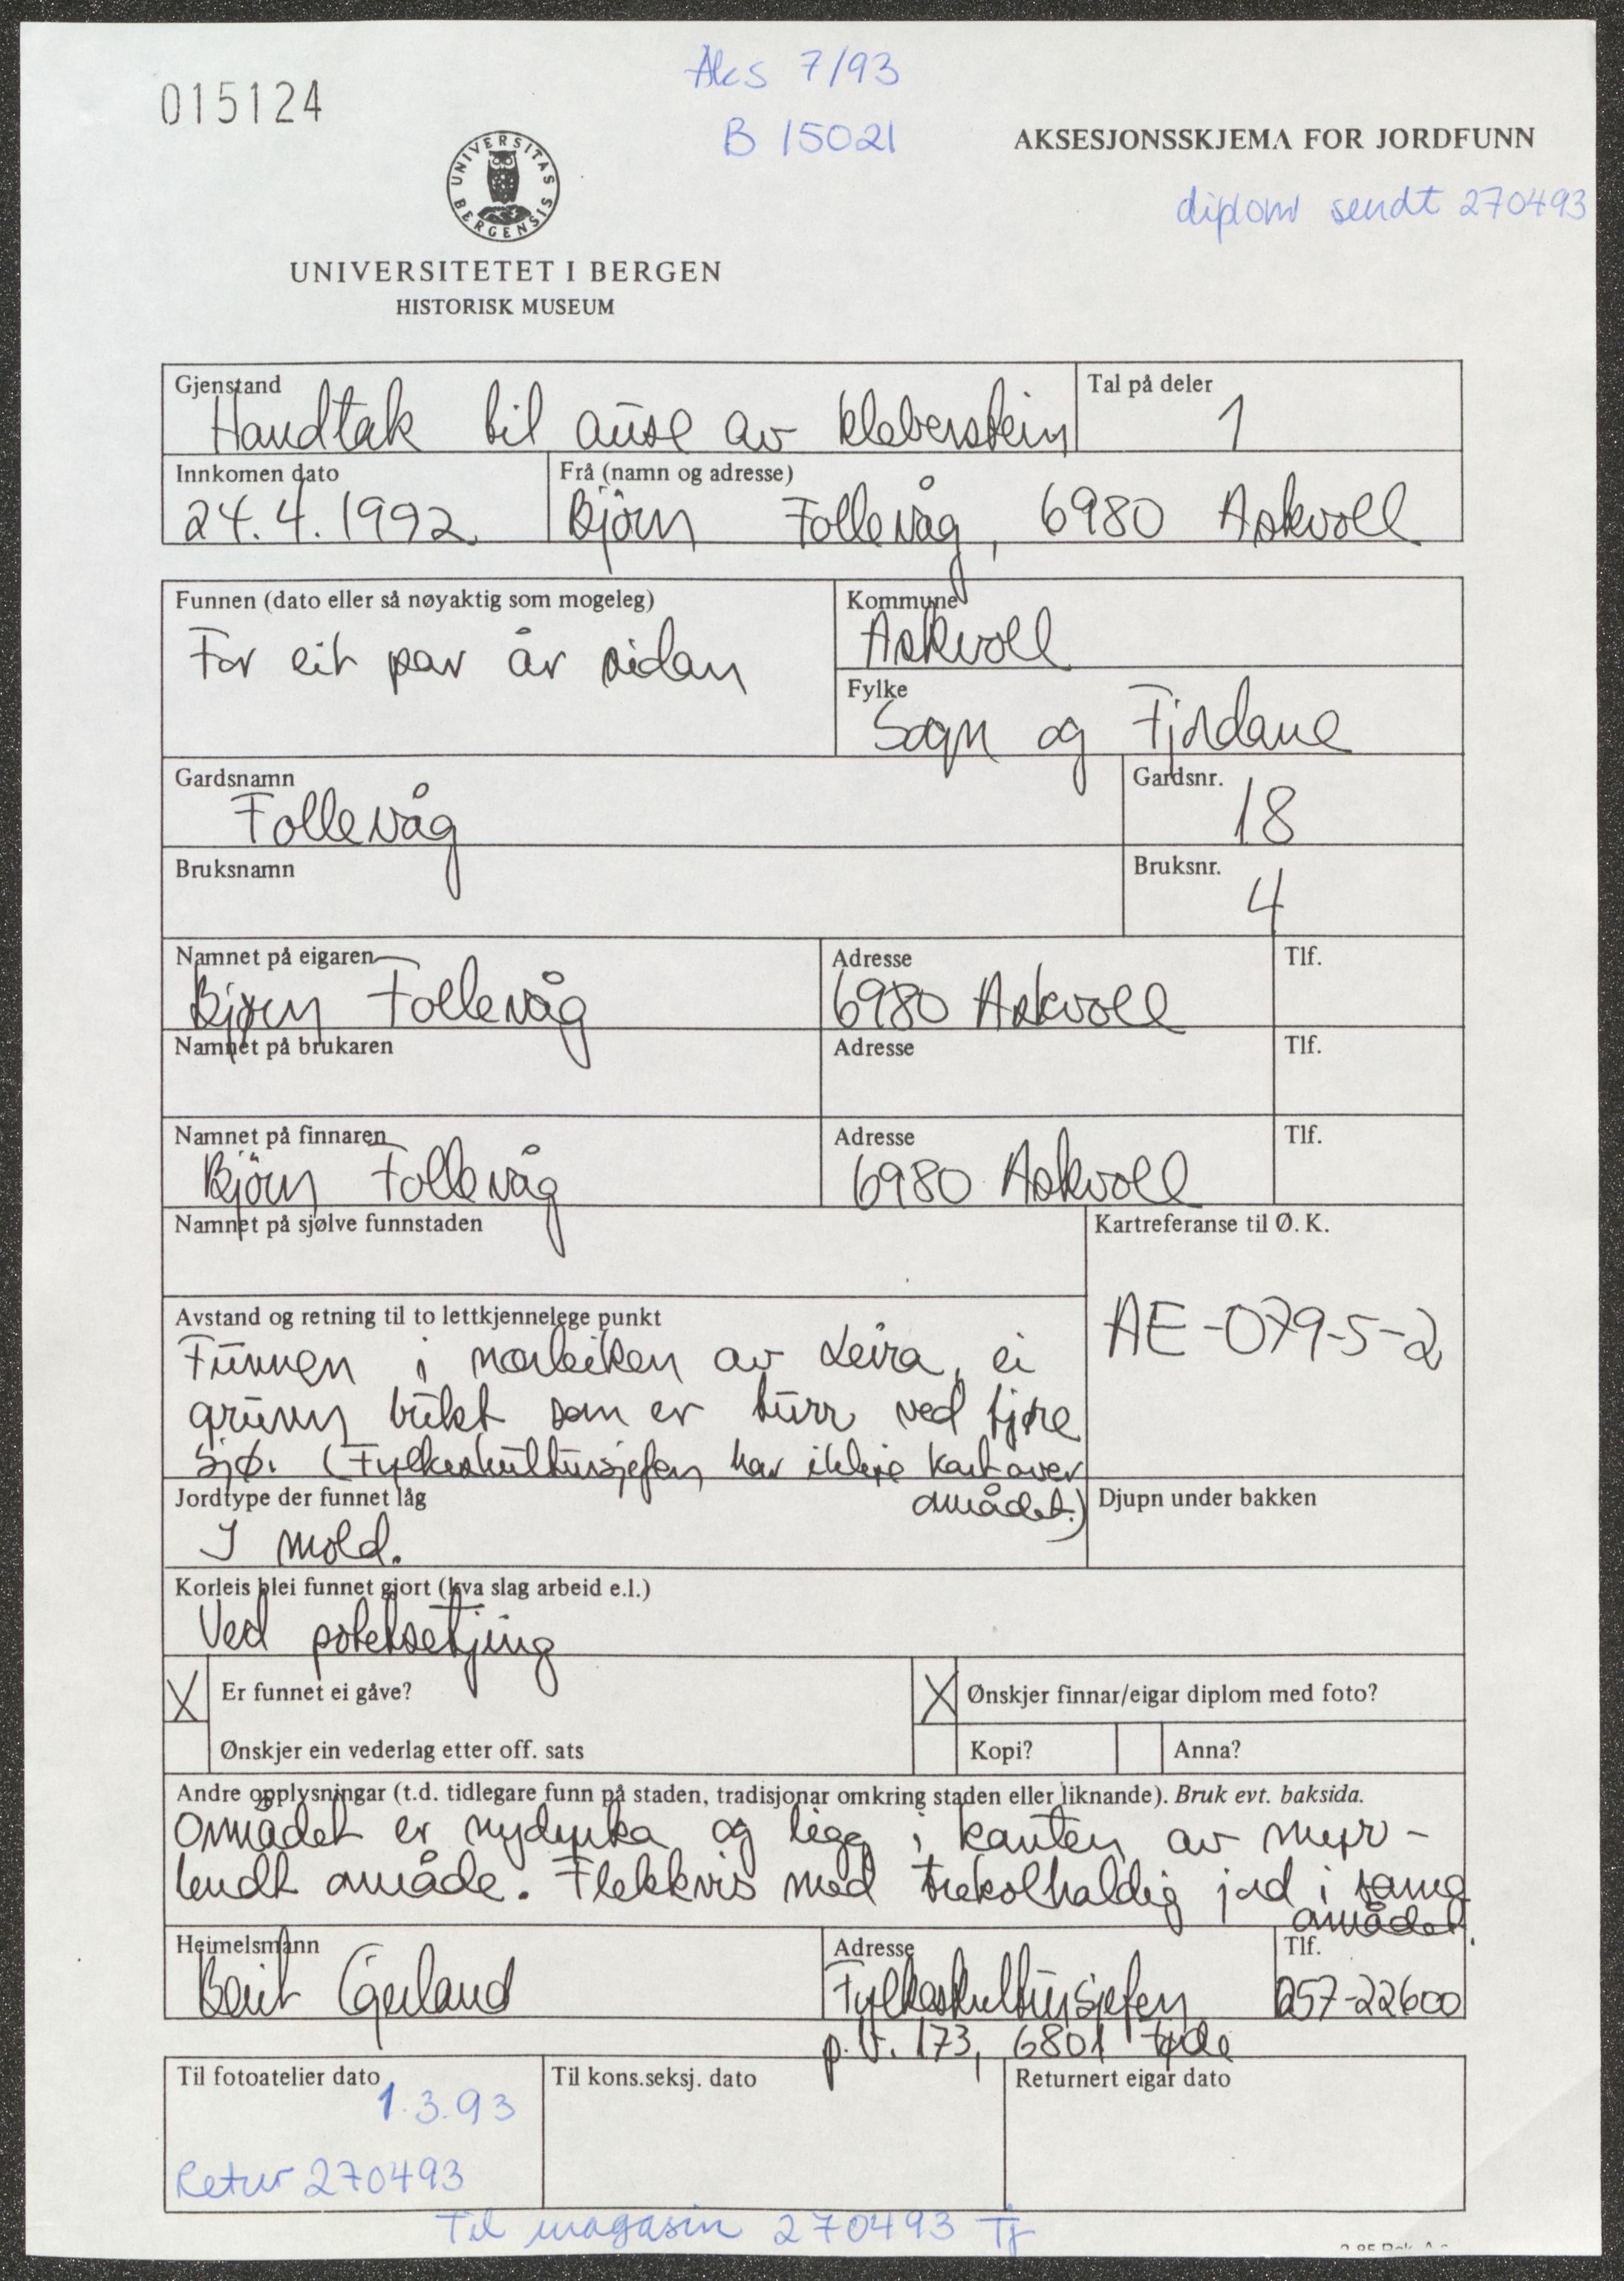 015124
Aks 7/93
B 15021
AKSESJONSSKJEMA FOR JORDFUNN
diplom sendt 270493
UNIVERSITAS BERGENSIS
UNIVERSITETET I BERGEN
HISTORISK MUSEUM
Gjenstand
Handtak til ause av kleberstein
Tal på deler
1
Innkomen dato
24.4.1992
Frå (namn og adresse)
Björn Follevåg, 6980 Askvoll
Funnen (dato eller så nøyaktig som mogeleg)
For eit par år sidan
Kommune
Askvoll
Fylke
Sogn og Fjordane
Gardsnamn
Follevåg
Gardsnr.
18
Bruksnamn
Bruksnr.
4
Namnet på eigaren
Bjørn Follevåg
Adresse
6980 Askvoll
Tlf.
Namnet på brukaren
Adresse
Tlf.
Namnet på finnaren
Björn Follevåg
Adresse
6980 Askvoll
Tlf.
Namnet på sjølve funnstaden
Kartreferanse til Ø.K.
AE-079-5-2
Avstand og retning til to lettkjennelege punkt
Funnen i av Leira, ei
grunn bukt som er turr ved fjøre
sjø. (Fylkeskultursjefen har ikkje kart over
området.)
Jordtype der funnet låg
I mold.
Djupn under bakken
Korleis blei funnet gjort (kva slag arbeid e.l.)
Ved potetsetjing
X Er funnet ei gåve?
X Ønskjer finnar/eigar diplom med foto?
Ønskjer ein vederlag etter off. sats
Kopi?
Anna?
Andre opplysningar (t.d. tidlegare funn på staden, tradisjonar omkring staden eller liknande). Bruk evt. baksida.
Området er nydyrka og ligg i kanten av myr-
lendt område. Flekkvis med trekolhaldig jord i same
området.
Heimelsmann
Berit Gjerland
Adresse
Fylkeskultursjefen
p.b. 173, 6801 Førde
Tlf.
057-22600
Til fotoatelier dato
1.3.93
Retur 270493
Til kons.seksj. dato
Returnert eigar dato
Til magasin 270493 Tj